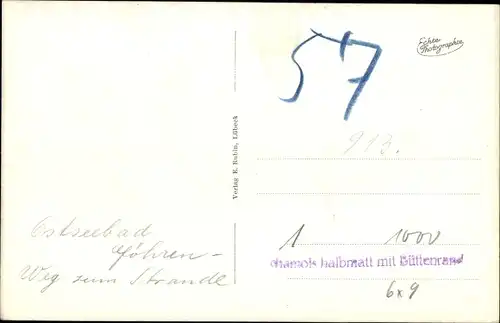 57
Echte
Photographie
Verlag E. Rubin, Lübeck
913.
Ostseebad
Göhren-
Weg zum Strande
1 1000
chamois halbmatt mit Büttenrand
6x9